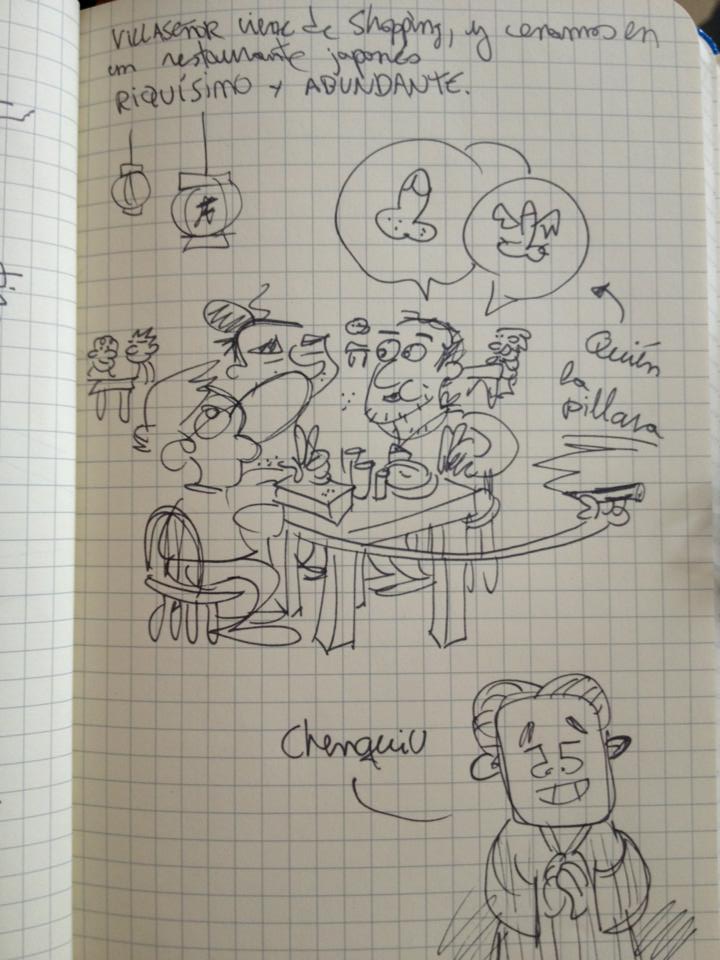 VILLASEÑOR viene de Shopping, y cenamos en
un restaurante japonés
RIQUÍSIMO y ABUNDANTE.
Quién
la
pillara
Chenquiu